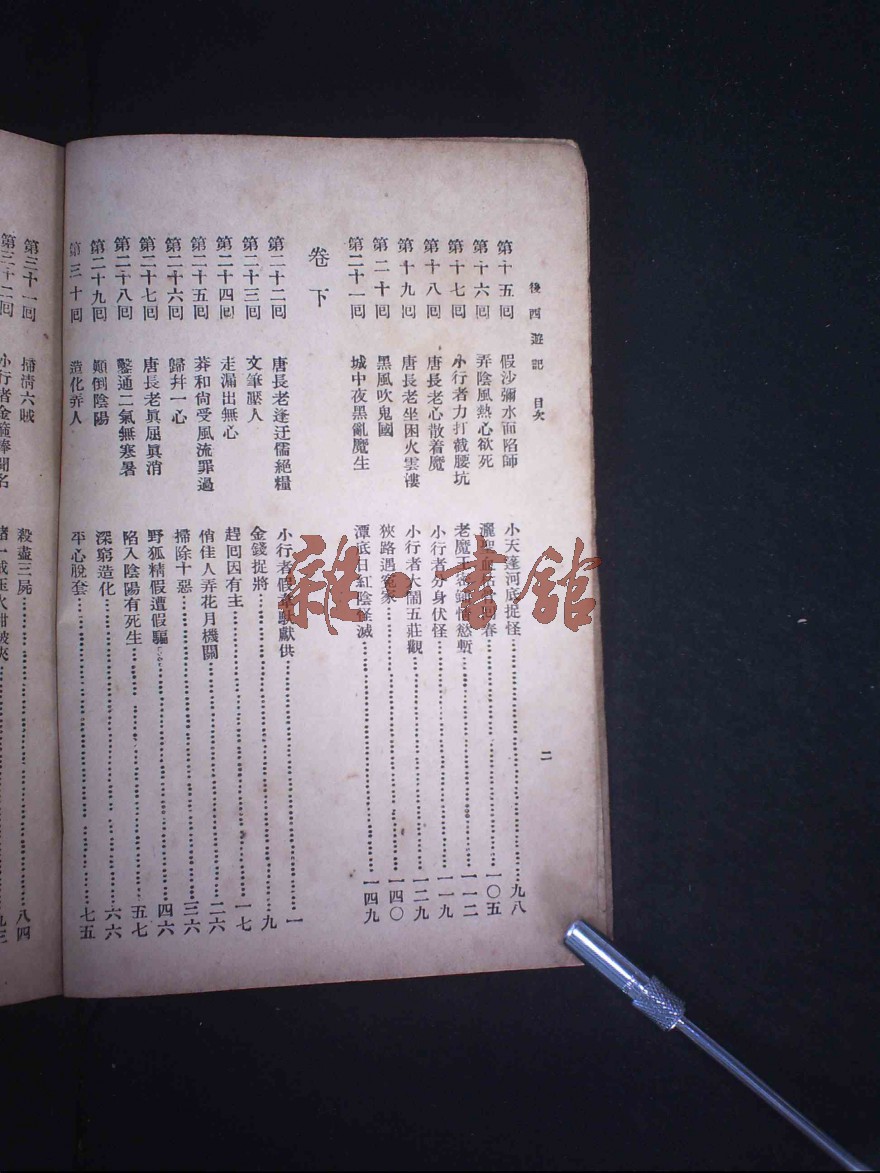 後西遊記 目次
二
第十五回 假沙彌水面陷師 小天蓬河底捉怪 九八
第十六回 弄陰風熱心欲死 灑聖血枯骨回春 一〇五
第十七回 小行者力打截腰坑 老魔王密鋪情慾塹 一一二
第十八回 唐長老心散着魔 小行者分身伏怪 一一九
第十九回 唐長老坐困火雲樓 小行者大鬧五莊觀 一二九
第二十回 黑風吹鬼國 狹路遇冤家 一四〇
第二十一回 城中夜黑亂魔生 潭底日紅陰怪滅 一四九
卷下
第二十二回 唐長老逢迂儒絕糧 小行者假韋馱獻供 一
第二十三回 文筆壓人 金錢捉將 九
第二十四回 走漏出無心 趕回因有主 一七
第二十五回 莽和尙受風流罪過 俏佳人弄花月機關 二六
第二十六回 歸幷一心 掃除十惡 三六
第二十七回 唐長老眞屈眞消 野狐精假遭假騙 四六
第二十八回 鑿通二氣無寒暑 陷入陰陽有死生 五七
第二十九回 顚倒陰陽 深窮造化 六六
第三十回 造化弄人 平心脫套 七五
第三十一回 掃清六賊 殺盡三屍 八四
第三十二回 小行者金箍棒聞名
雜·書館